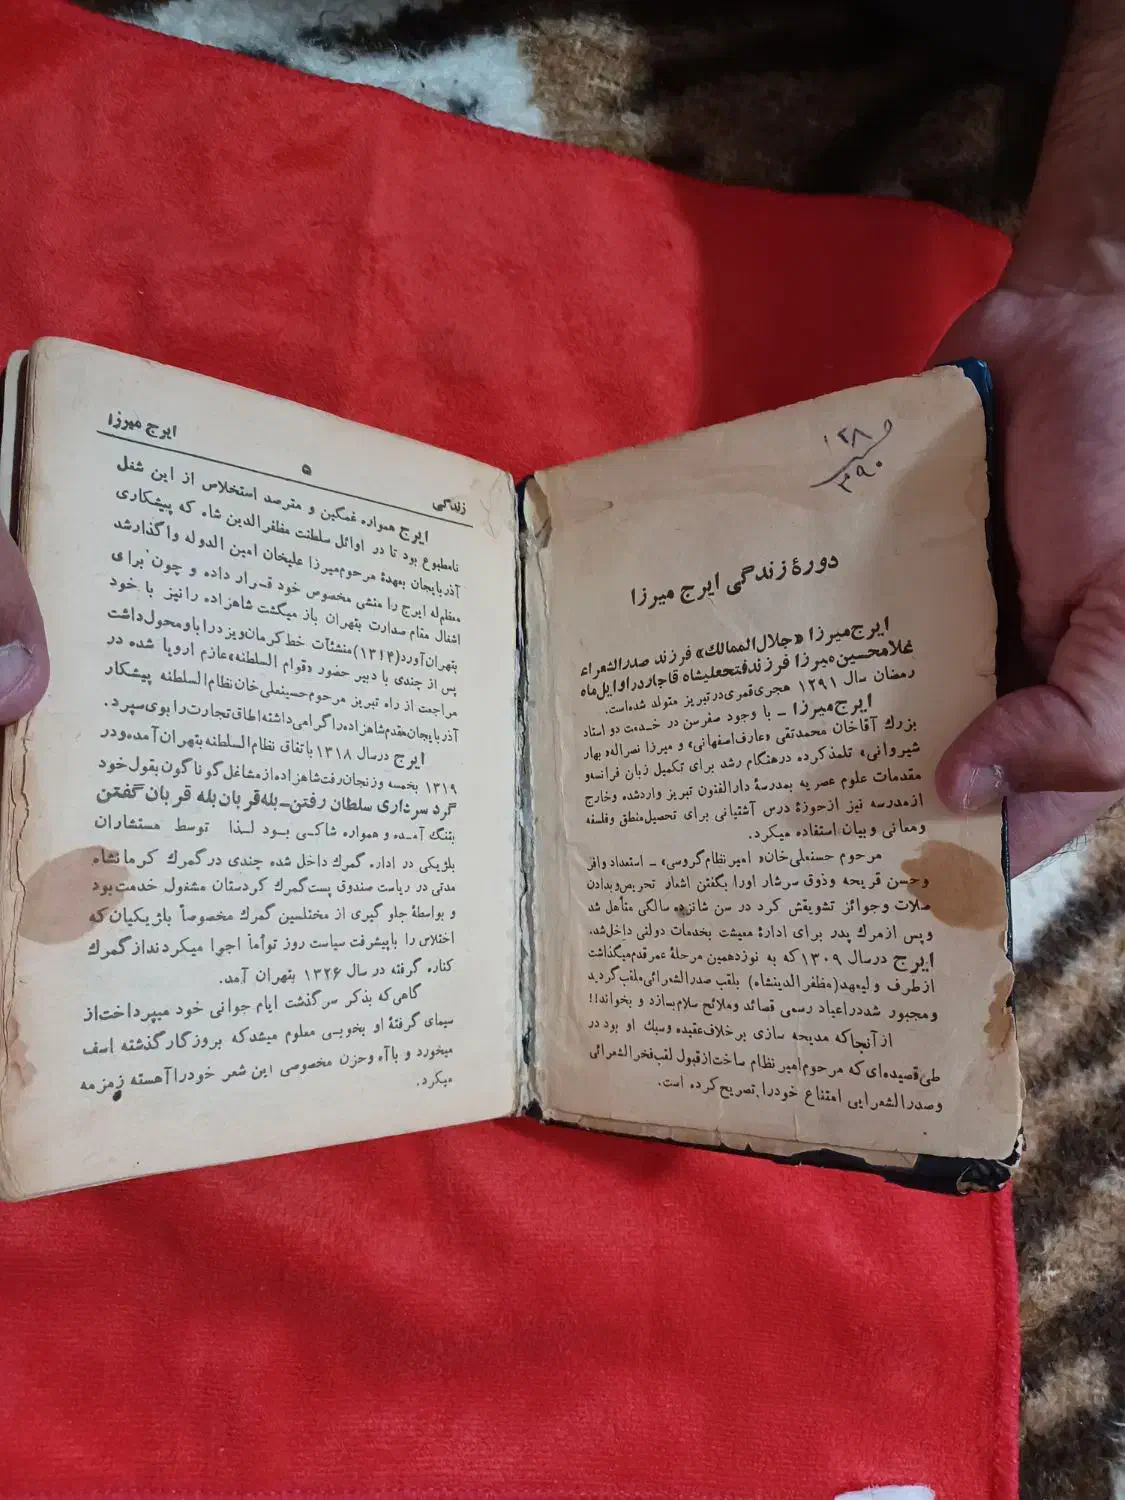 ۱۲۸
۳۹۰
دورهٔ زندگی ایرج میرزا
ایرج میرزا «جلال الممالك» فرزند صدرالشعراء
غلامحسین میرزا فرزند فتحعلیشاه قاجار در اوایل ماه
رمضان سال ۱۲۹۱ هجری قمری در تبریز متولد شده‌است.
ایرج میرزا ـ با وجود صغر سن در خـدمت دو استاد
بزرك آقاخان محمدتقی «عارف اصفهانی» و میرزا نصراله «بهار
شیروانی» تلمذ کرده در هنگام رشد برای تکمیل زبان فرانسه و
مقدمات علوم عصر یه بمدرسهٔ دارالفنون تبریز وارد شده و خارج
از مدرسه نیز از حوزهٔ درس آشتیانی برای تحصیل منطق و فلسفه
و معانی و بیان استفاده میکرد.
مرحوم حسنعلی خان« امیر نظام گروسی» ـ استعداد وافر
و حسن قریحه و ذوق سرشار اورا بگفتن اشعار تحریص و بدادن
صلات و جوائز تشویقش کرد در سن شانزده سالگی متأهل شد
و پس از مرك پدر برای ادارهٔ معیشت بخدمات دولتی داخل شد.
ایرج در سال ۱۳۰۹ که به نوزدهمین مرحلهٔ عمر قدم میگذاشت
از طرف ولیعهد (مظفرالدینشاه) بلقب صدرالشعرائی ملقب گردید
و مجبور شد در اعیاد رسمی قصائد و ملائح سلام بسازد و بخواند!!
از آنجا که مدیحه سازی بر خلاف عقیده و سبك او بود در
طی قصیده‌ای که مرحوم امیر نظام ساخت از قبول لقب فخرالشعرائی
و صدرالشعرایی امتناع خود را تصریح کرده است.
زندگی
۵
ایرج میرزا
ایرج همواره غمگین و مترصد استخلاص از این شغل
نامطبوع بود تا در اوائل سلطنت مظفرالدین شاه که پیشکاری
آذربایجان بعهدهٔ مرحوم میرزا علیخان امین الدوله واگذار شد
معظم‌له ایرج را منشی مخصوص خود قـرار داده و چون برای
اشغال مقام صدارت بتهران باز میگشت شاهزاده را نیز با خود
بتهران آورد (۱۳۱۴) منشئآت خط کرمان ویزد را باو محول داشت
پس از چندی با دبیر حضور «قوام السلطنه» عازم اروپا شده در
مراجعت از راه تبریز مرحوم حسینعلی خان نظام السلطنه پیشکار
آذربایجان مقدم شاهزاده را گرامی داشته اطاق تجارت را بوی سپرد.
ایرج در سال ۱۳۱۸ با تفاق نظام السلطنه بتهران آمده و در
۱۳۱۹ بخمسه و زنجان رفت شاهزاده از مشاغل گوناگون بقول خود
گرد سرداری سلطان رفتن ـ بله قربان بله قربان گفتن
بتنگ آمـده و همواره شاکـی بـود لـذا توسط مستشاران
بلژیکی در اداره گمرك داخل شده چندی در گمرك کرمانشاه
مدتی در ریاست صندوق پست گمرك کردستان مشغول خدمت بود
و بواسطهٔ جلو گیری از مختلسین گمرك مخصوصاً بلژیکیان که
اختلاس را با پیشرفت سیاست روز توأماً اجرا میکردند از گمرك
کناره گرفته در سال ۱۳۲۶ بتهران آمد.
گاهی که بذکر سرگذشت ایام جوانی خود میپرداخت از
سیمای گرفتهٔ او بخوبی معلوم میشد که بروزگار گذشته اسف
میخورد و با آه و حزن مخصوصی این شعر خود را آهسته زمزمه
میکرد.